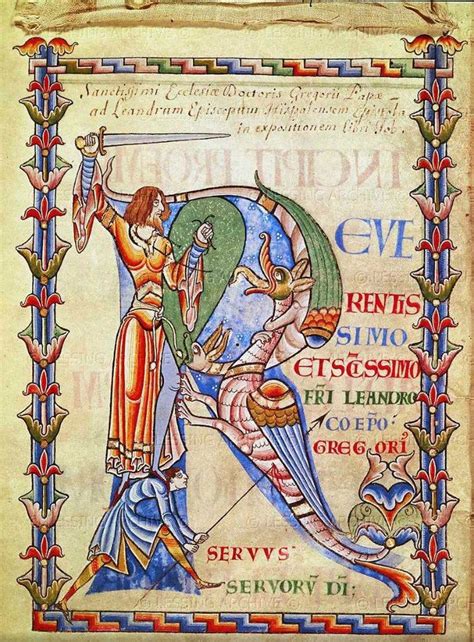 Sanctissimi Ecclesiæ Doctoris Gregorii Papæ
ad Leandrum Episcopum Hispalensem Epistola
in expositionem libri Iob.
REVE
RENTIS
SIMO
ET SC̄ISSIMO
FR̄I LEANDRO
COEP̄O
GREGORI᷒
SERVVS
SERVORV̄ DI: